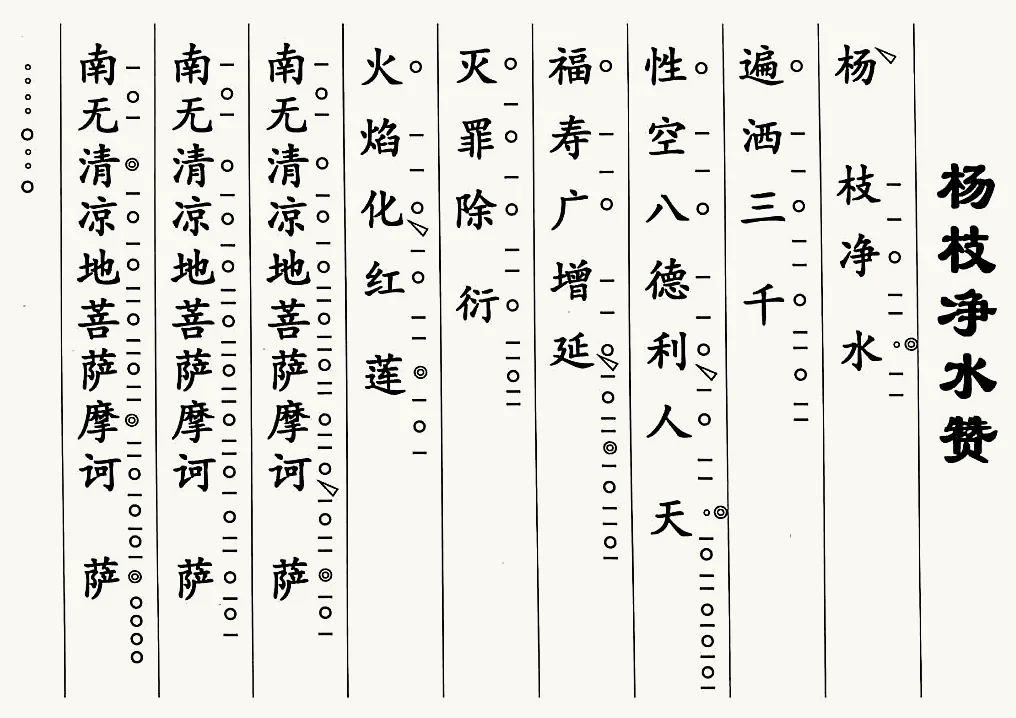 杨枝净水赞
杨枝净水
遍洒三千
性空八德利人天
福寿广增延
灭罪除衍
火焰化红莲
南无清凉地菩萨摩诃萨
南无清凉地菩萨摩诃萨
南无清凉地菩萨摩诃萨